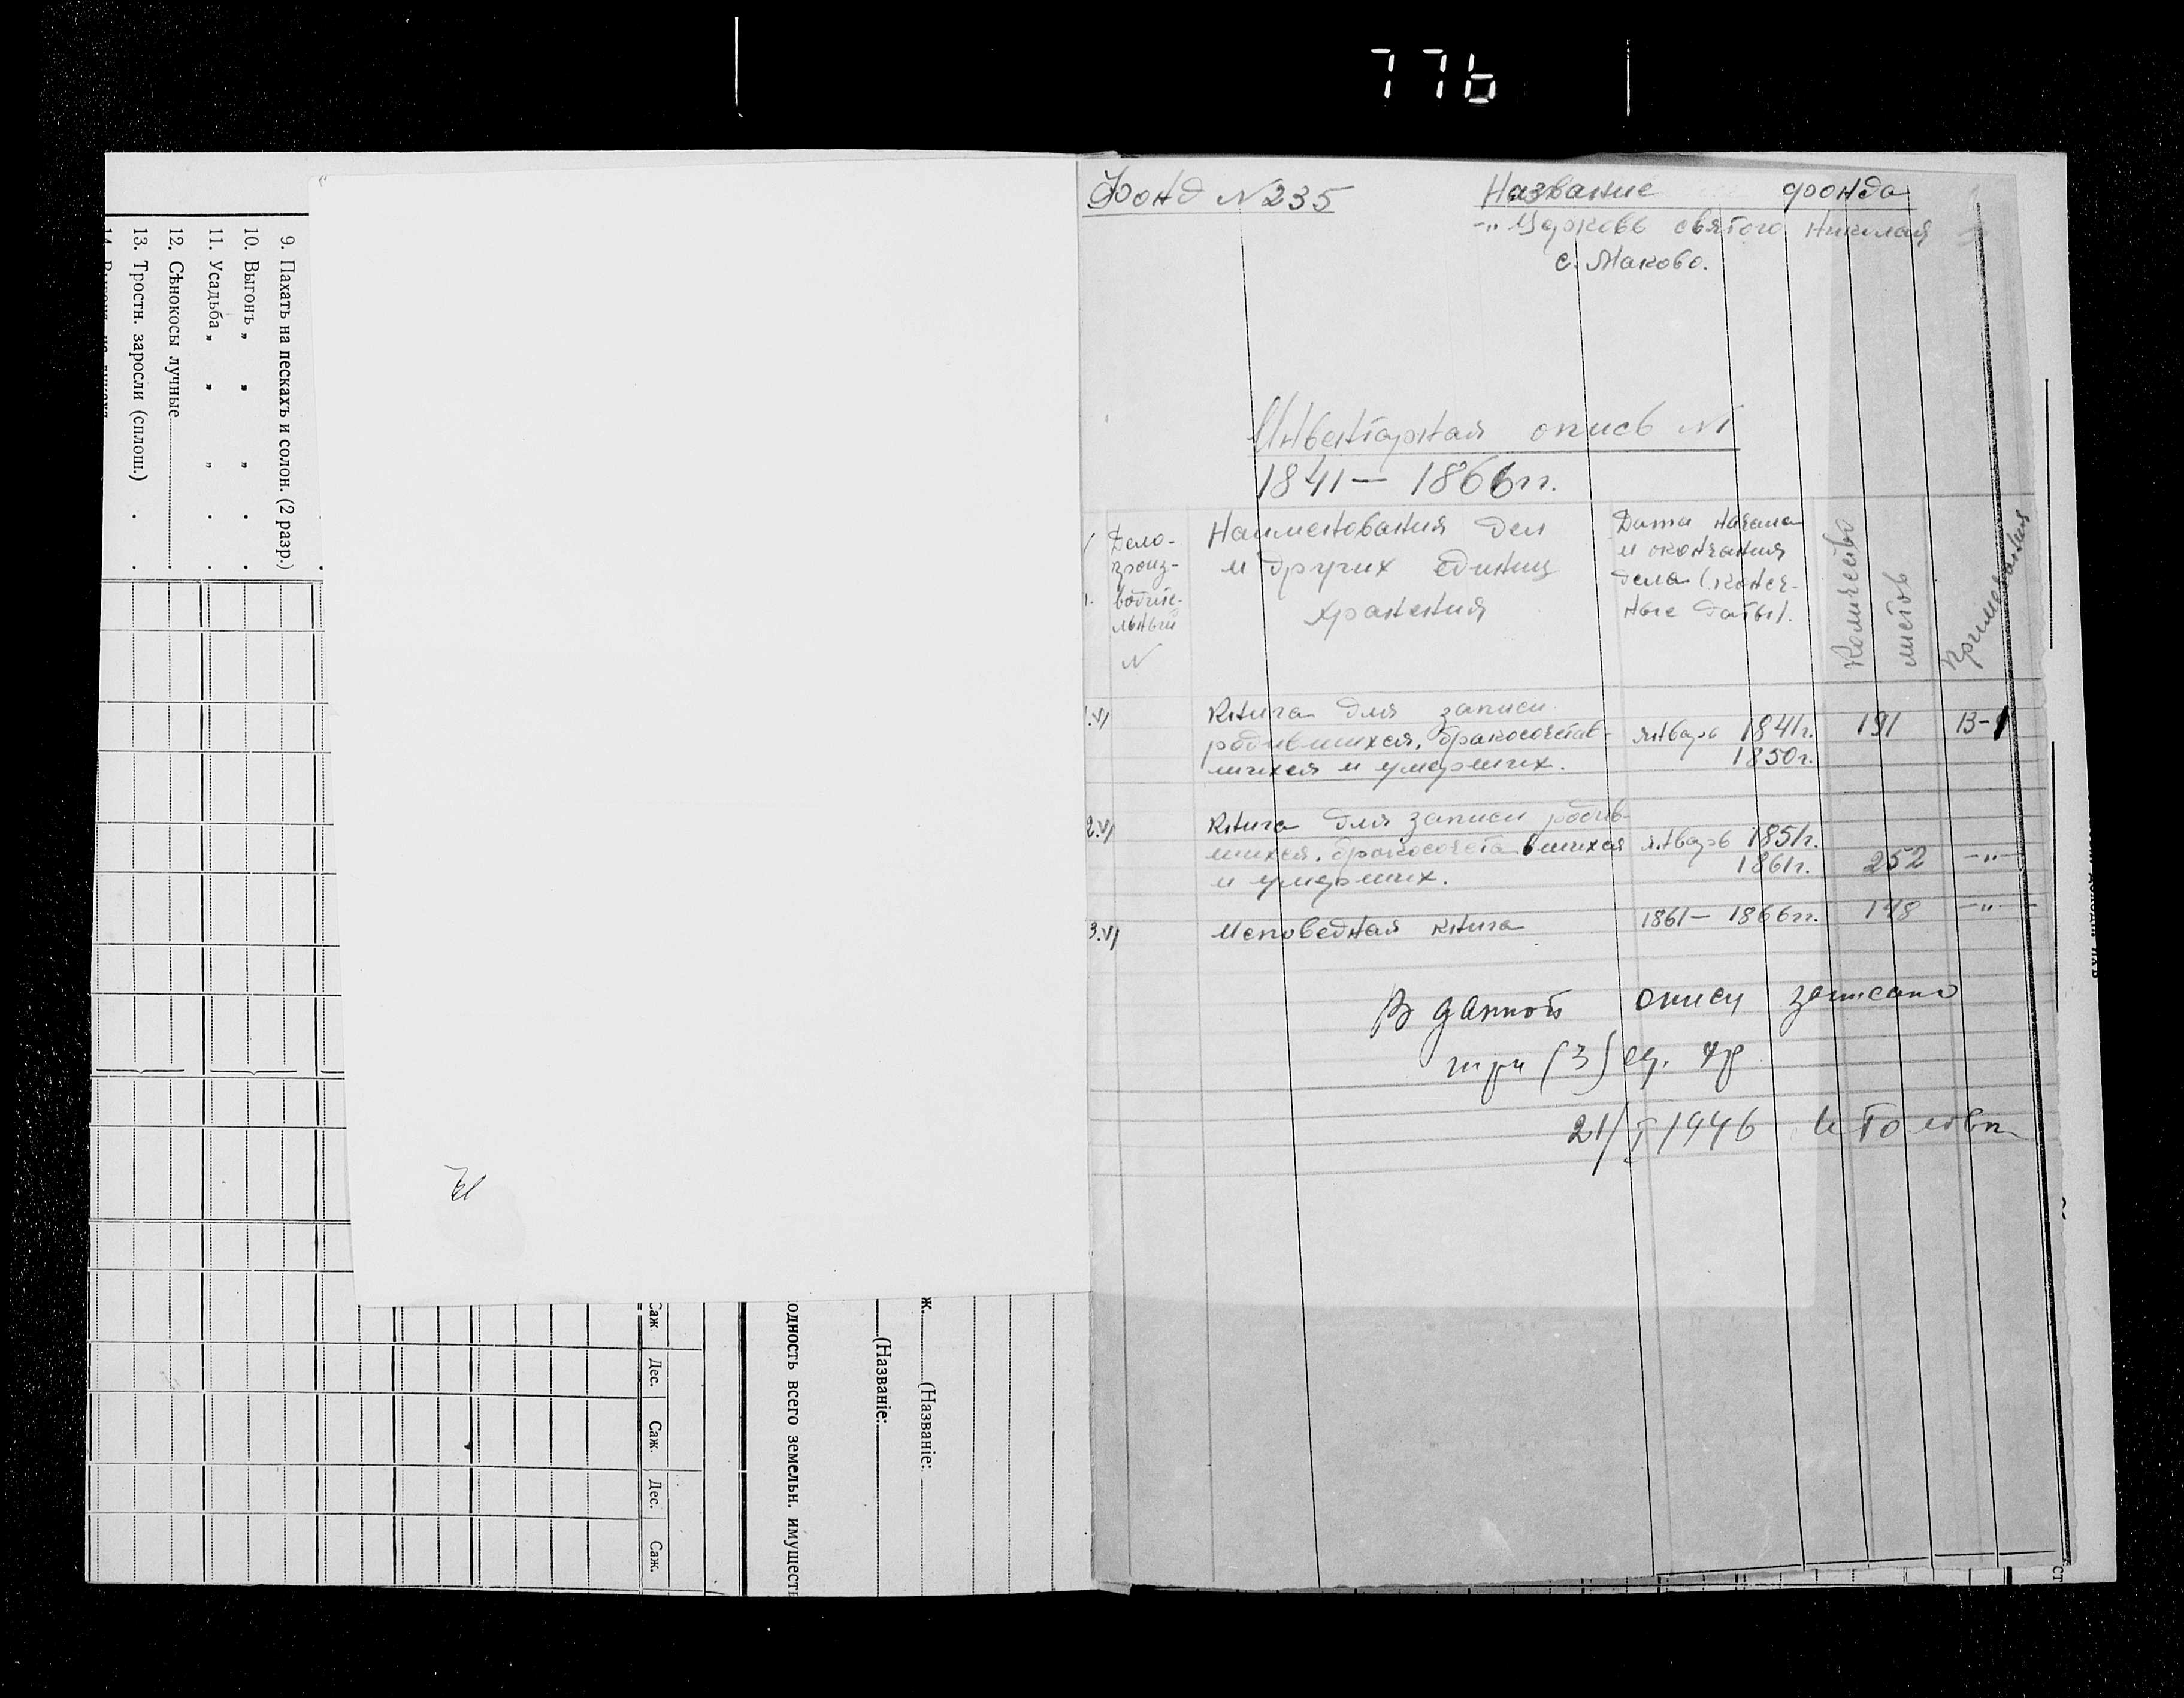 776
9. Пахать на пескахъ и солон. (2 разр.)
10. Выгонъ „ „ „
11. Усадьба „ „ „
12. Сѣнокосы лучные
13. Тростн. заросли (сплош.)
Саж
Дес.
Саж.
Дес.
Саж.
одность всего земельн. имуществ
(Названіе:
ж. (Названіе:
Фонд N 235 Название фонда
-"- Церковь святого Николая
с. Маково.
Инвентарная опись N1
1841 — 1866 гг.
Дело-
произ-
водите-
льный
N
Наименования дел
и других единиц
хранения
Дата начала
и окончания
дела (конеч-
ные даты).
Количество
листов
Примечания
1.
Книга для записи
родившихся, бракосочетав-
шихся и умерших.
январь 1841г.
1850г.
191
В-1
2.
Книга для записи родив-
шихся, бракосочетавшихся
и умерших.
январь 1851г.
1861г.
252
-"-
3.
Исповедная книга
1861 — 1866 гг.
148
-"-
В данной описи записано
три (3) ед. хр
21/I 1946